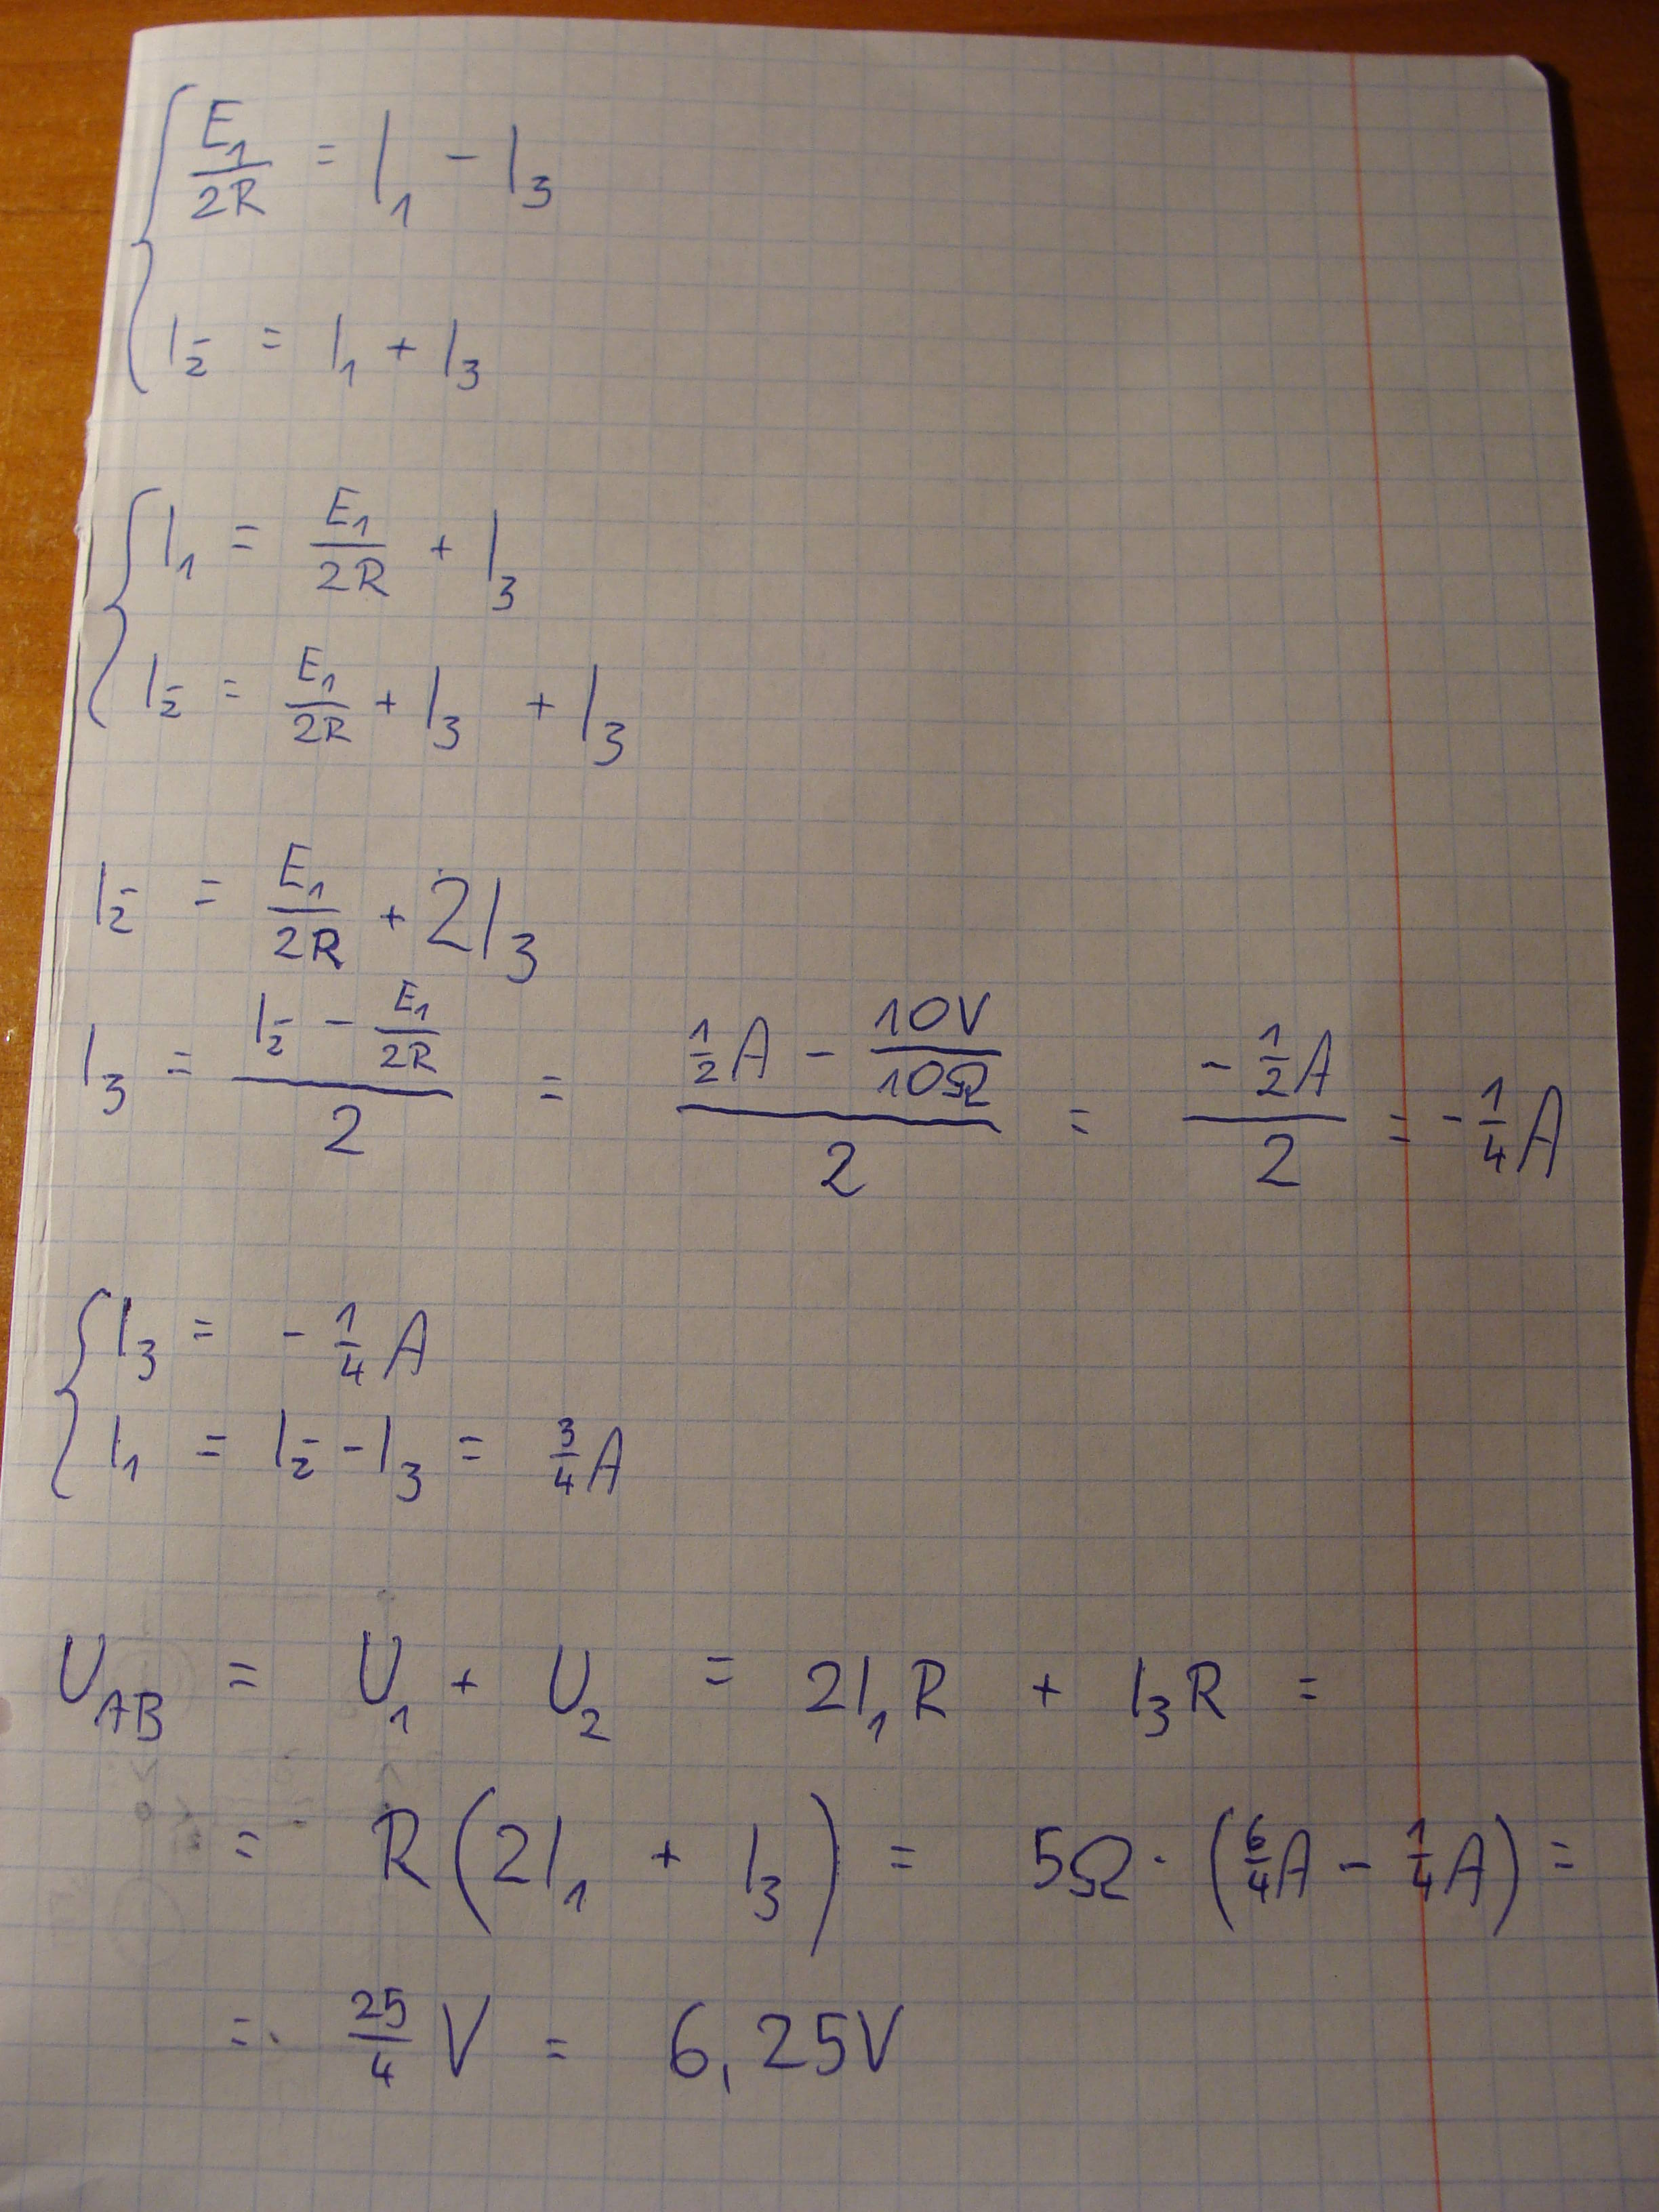 E₁/2R = I₁ - I₃
I₂̄ = I₁ + I₃
I₁ = E₁/2R + I₃
I₂̄ = E₁/2R + I₃ + I₃
I₂̄ = E₁/2R + 2I₃
I₃ = (I₂̄ - E₁/2R)/2 = (1/2 A - 10V/10Ω)/2 = (-1/2 A)/2 = -1/4 A
I₃ = -1/4 A
I₁ = I₂̄ - I₃ = 3/4 A
U_AB = U₁ + U₂ = 2I₁R + I₃R =
= R(2I₁ + I₃) = 5Ω · (6/4 A - 1/4 A) =
= 25/4 V = 6,25V